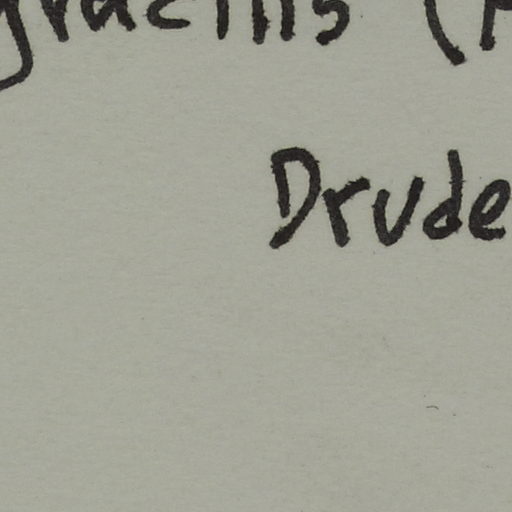 gracilis (
Drude